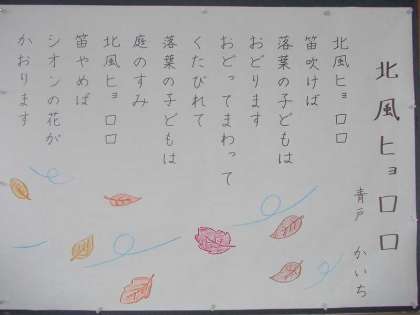 北風ヒョロロ
青戸 かいち
北風ヒョロロ
笛吹けば
落葉の子どもは
おどります
おどってまわって
くたびれて
落葉の子どもは
庭のすみ
北風ヒョロロ
笛やめば
シオンの花が
かおります